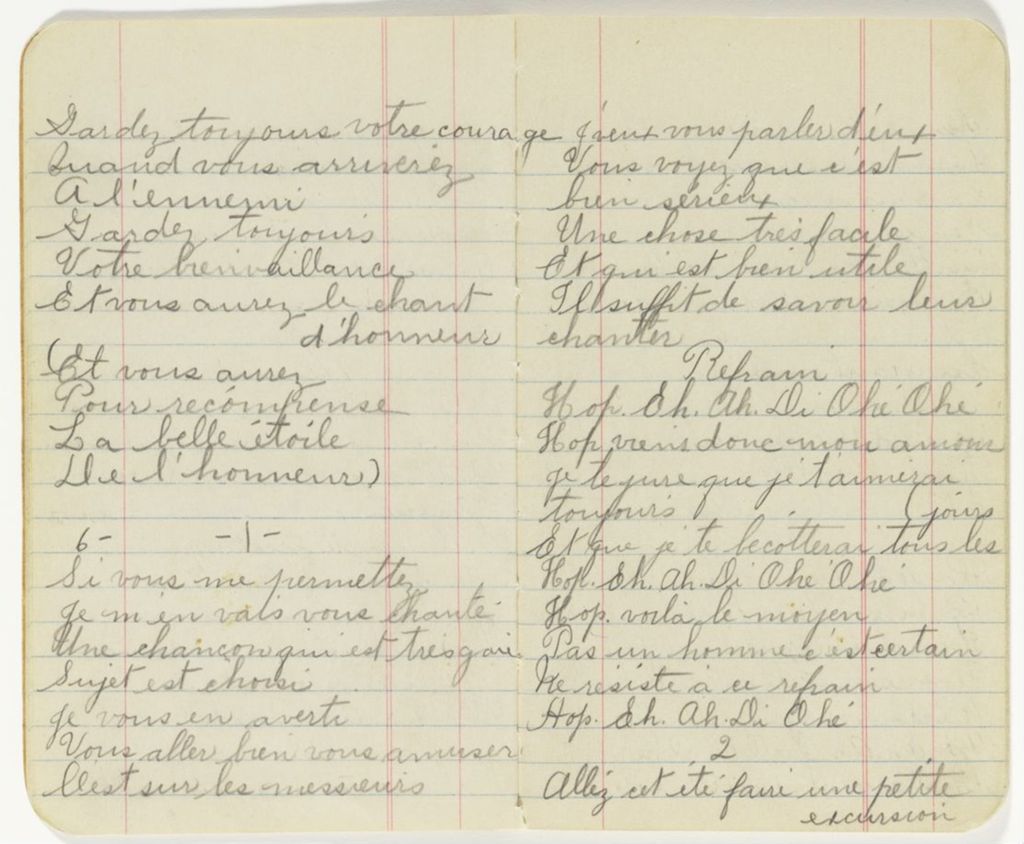 Gardez toujours votre courage
Quand vous arriverez
A l'ennemi
Gardez toujours
Votre bienvaillance
Et vous aurez le chant
d'honneur
(Et vous aurez
Pour recompense
La belle étoile
De l'honneur)
6- -1-
Si vous me permettez
Je m'en vais vous chanté
Une chancon qui est tres gaie
Sujet est choisi
Je vous en averti
Vous aller bien vous amuser
C'est sur les messieurs
J'veux vous parler d'eux
Vous voyez que c'est
bien serieux
Une chose tres facile
Et qui est bien utile
Il suffit de savoir leur
chanter
Refrain
Hop. Eh. Ah. Di Ohé Ohé
Hop viens donc mon amour
Je te jure que je t'aimerai
toujours (jours
Et que je te becotterai tous les
Hop. Eh. Ah. Di Ohé Ohé
Hop. voila le moyen
Pas un homme c'est certain
Ne resiste a ce refrain
Hop. Eh. Ah. Di Ohé
2
Allez cet été faire une petite
excursion